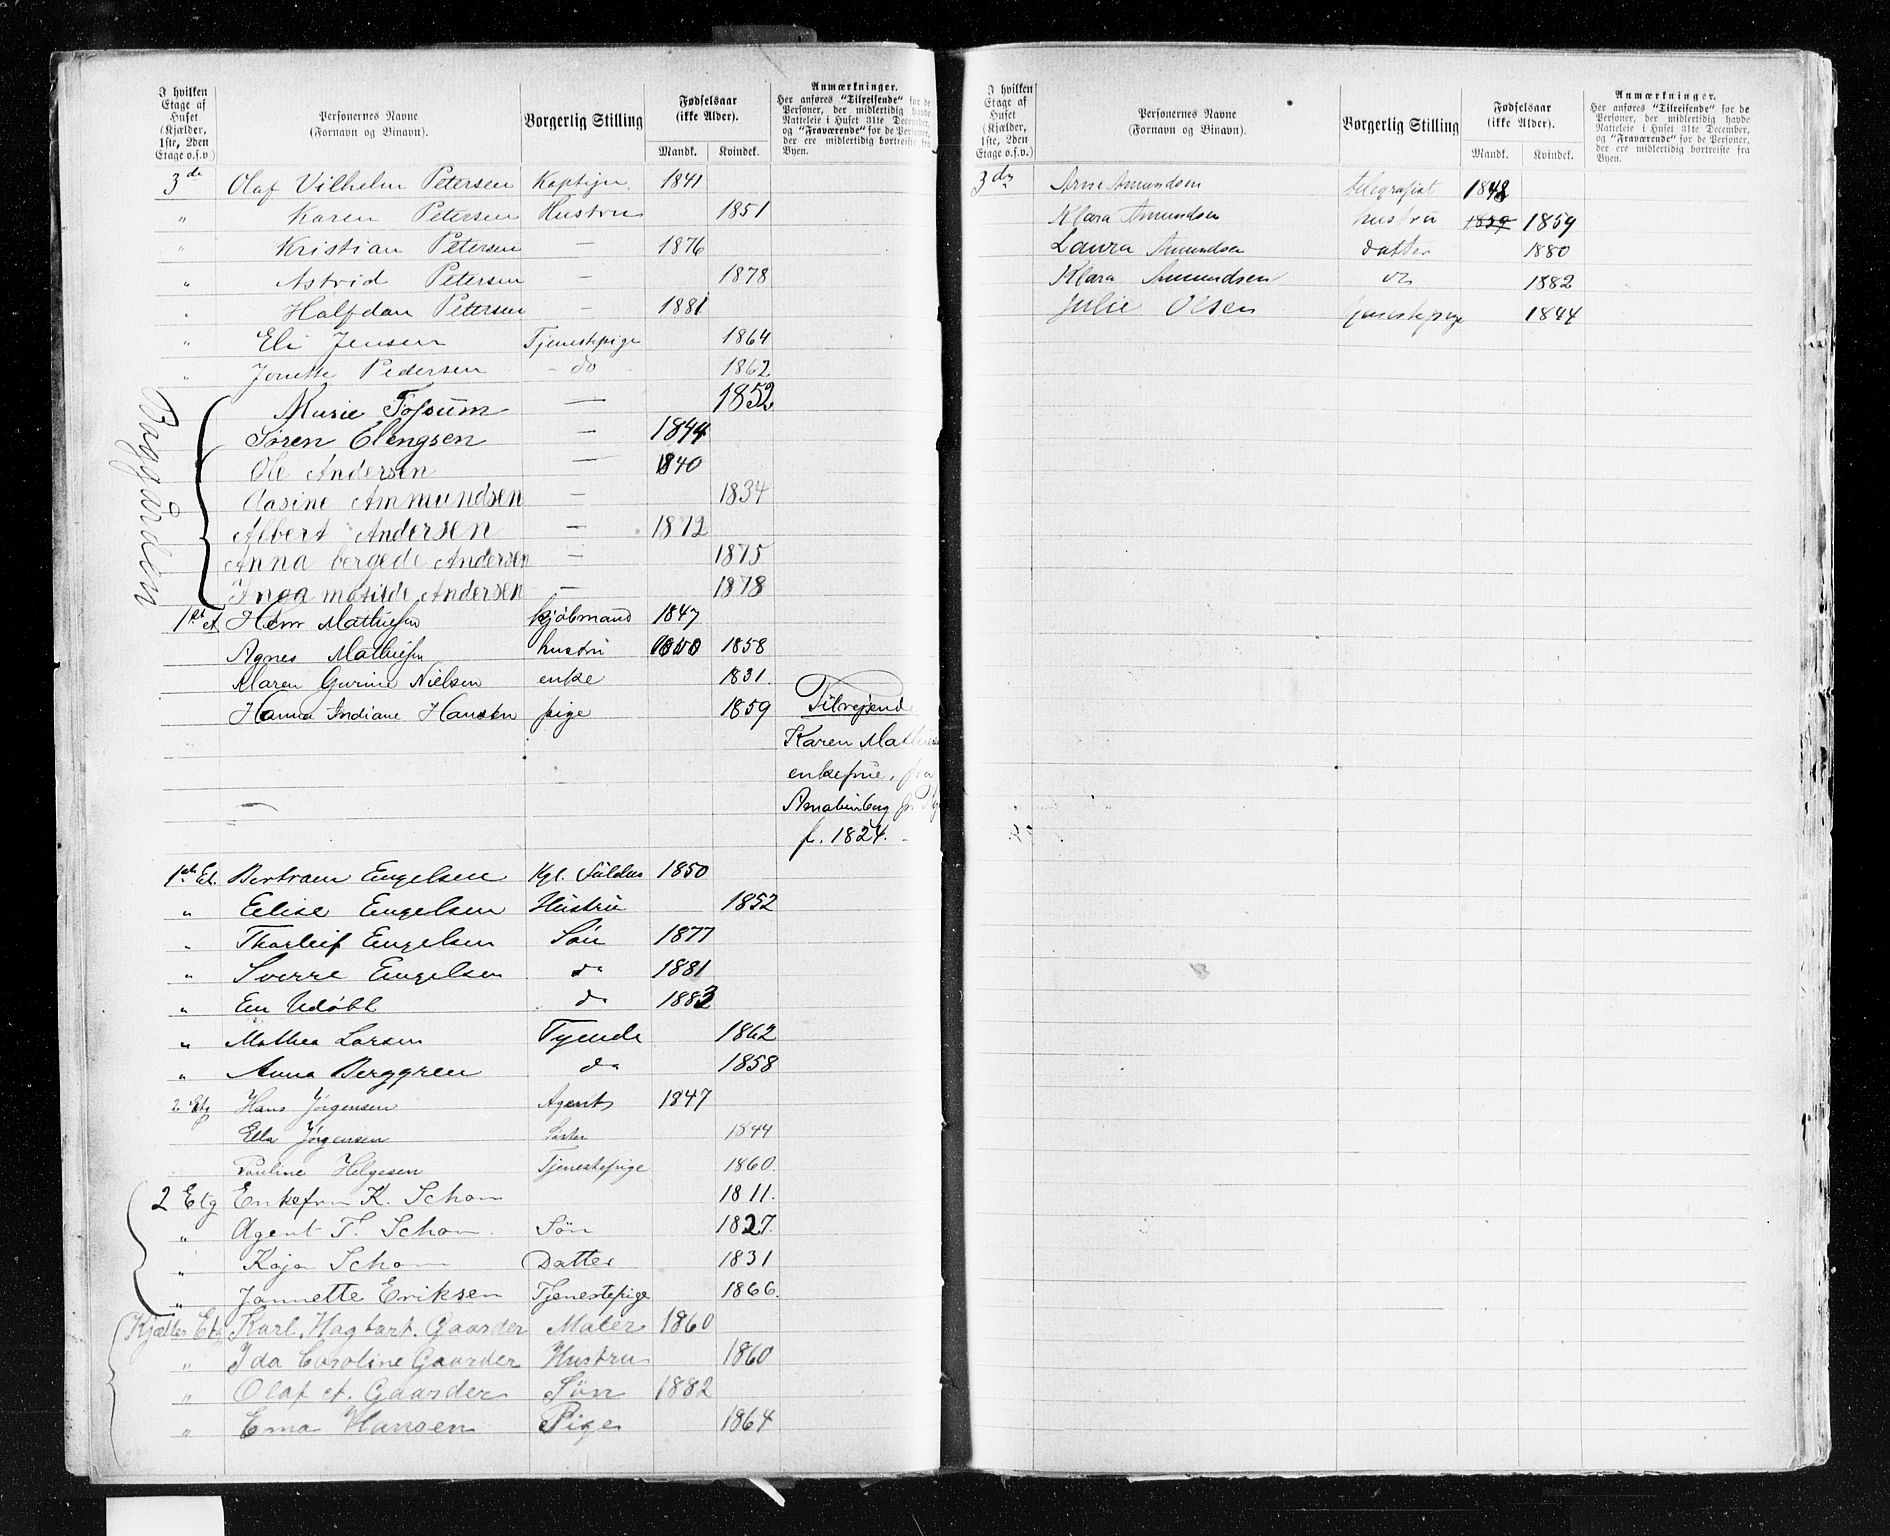 I hvilken Etage af Huset (Kjælder, 1ste, 2den Etage o.s.v.)
Personernes Navne (Fornavn og Binavn).
Borgerlig Stilling
Fødselsaar (ikke Alder).
Mandk. Kvindek.
Anmærkninger.
Her anføres "Tilreisende" for de Personer, der midlertidig havde Natteleie i Huset 31te December, og "Fraværende" for de Personer, der ere midlertidig bortreiste fra Byen.
3de Olaf Vilhelm Petersen Kaptejn 1841
" Karen Petersen Hustru 1851
" Kristian Petersen — 1876
" Astrid Petersen — 1878
" Halfdan Petersen — 1881
" Eli Jensen Tjenestepige 1864
" Jonette Pedersen do 1862
Baggården
Marie Fossum — 1852
Søren Elengsen — 1844
Ole Andersen — 1840
Aasine Ammundsen — 1834
Albert Andersen — 1872
Anna bergede Andersen — 1875
Inga matilde Andersen — 1878
1st et Herm Mathiesen kjøbmand 1847
Agnes Mathiesen hustru 1858
Maren Gurine Nielsen enke 1831.
Hanna Indiane Hansen pige 1859
Tilrejsende
Karen Math
enkefrue, fra
f. 1824.
1ste Et. Bertram Engelsen Kgl. Fuldm 1850
" Elise Engelsen Hustru 1852
" Thorleif Engelsen Søn 1877
" Sverre Engelsen do 1881
" En Udøbt do 1883
" Mathea Larsen Tyende 1862
" Anna Berggren do 1858
2 Etg Hans Jørgensen Agent 1847
Ella Jørgensen Søster 1844
Pauline Helgesen Tjenestepige 1860.
2 Etg Enkefru K. Schom 1811.
" Agent T. Schom. Søn 1827.
" Kaja Schom Datter 1831
" Jannette Eriksen Tjenestepige 1866.
Kjælder Etg Karl Hagbart. Gaarder Maler 1860
" Ida Caroline Gaarder Hustru 1860
" Olaf A. Gaarder Søn 1882
" Ema Hansen Pige 1864
I hvilken Etage af Huset (Kjælder, 1ste, 2den Etage o.s.v.)
Personernes Navne (Fornavn og Binavn).
Borgerlig Stilling
Fødselsaar (ikke Alder).
Mandk. Kvindek.
Anmærkninger.
Her anføres "Tilreisende" for de Personer, der midlertidig havde Natteleie i Huset 31te December, og "Fraværende" for de Personer, der ere midlertidig bortreiste fra Byen.
3die Arne Amundsen telegrafist 1848
Klara Amundsen hustru 1859 1859
Laura Amundsen datter 1880
Klara Amundsen do 1882
Julie Olsen tjenestepige 1844